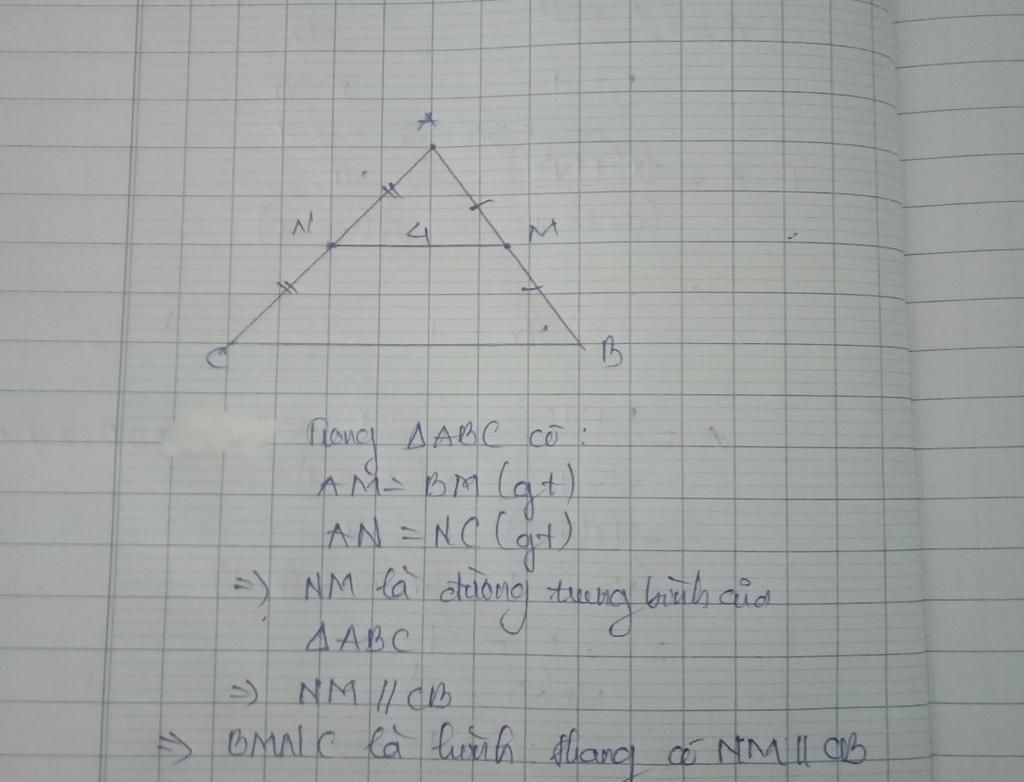 A
N 4 M
C B
Trong ΔABC có:
AM = BM (gt)
AN = NC (gt)
=> NM là đường trung bình của
ΔABC
=> NM // CB
=> BMNC là hình thang có NM // CB